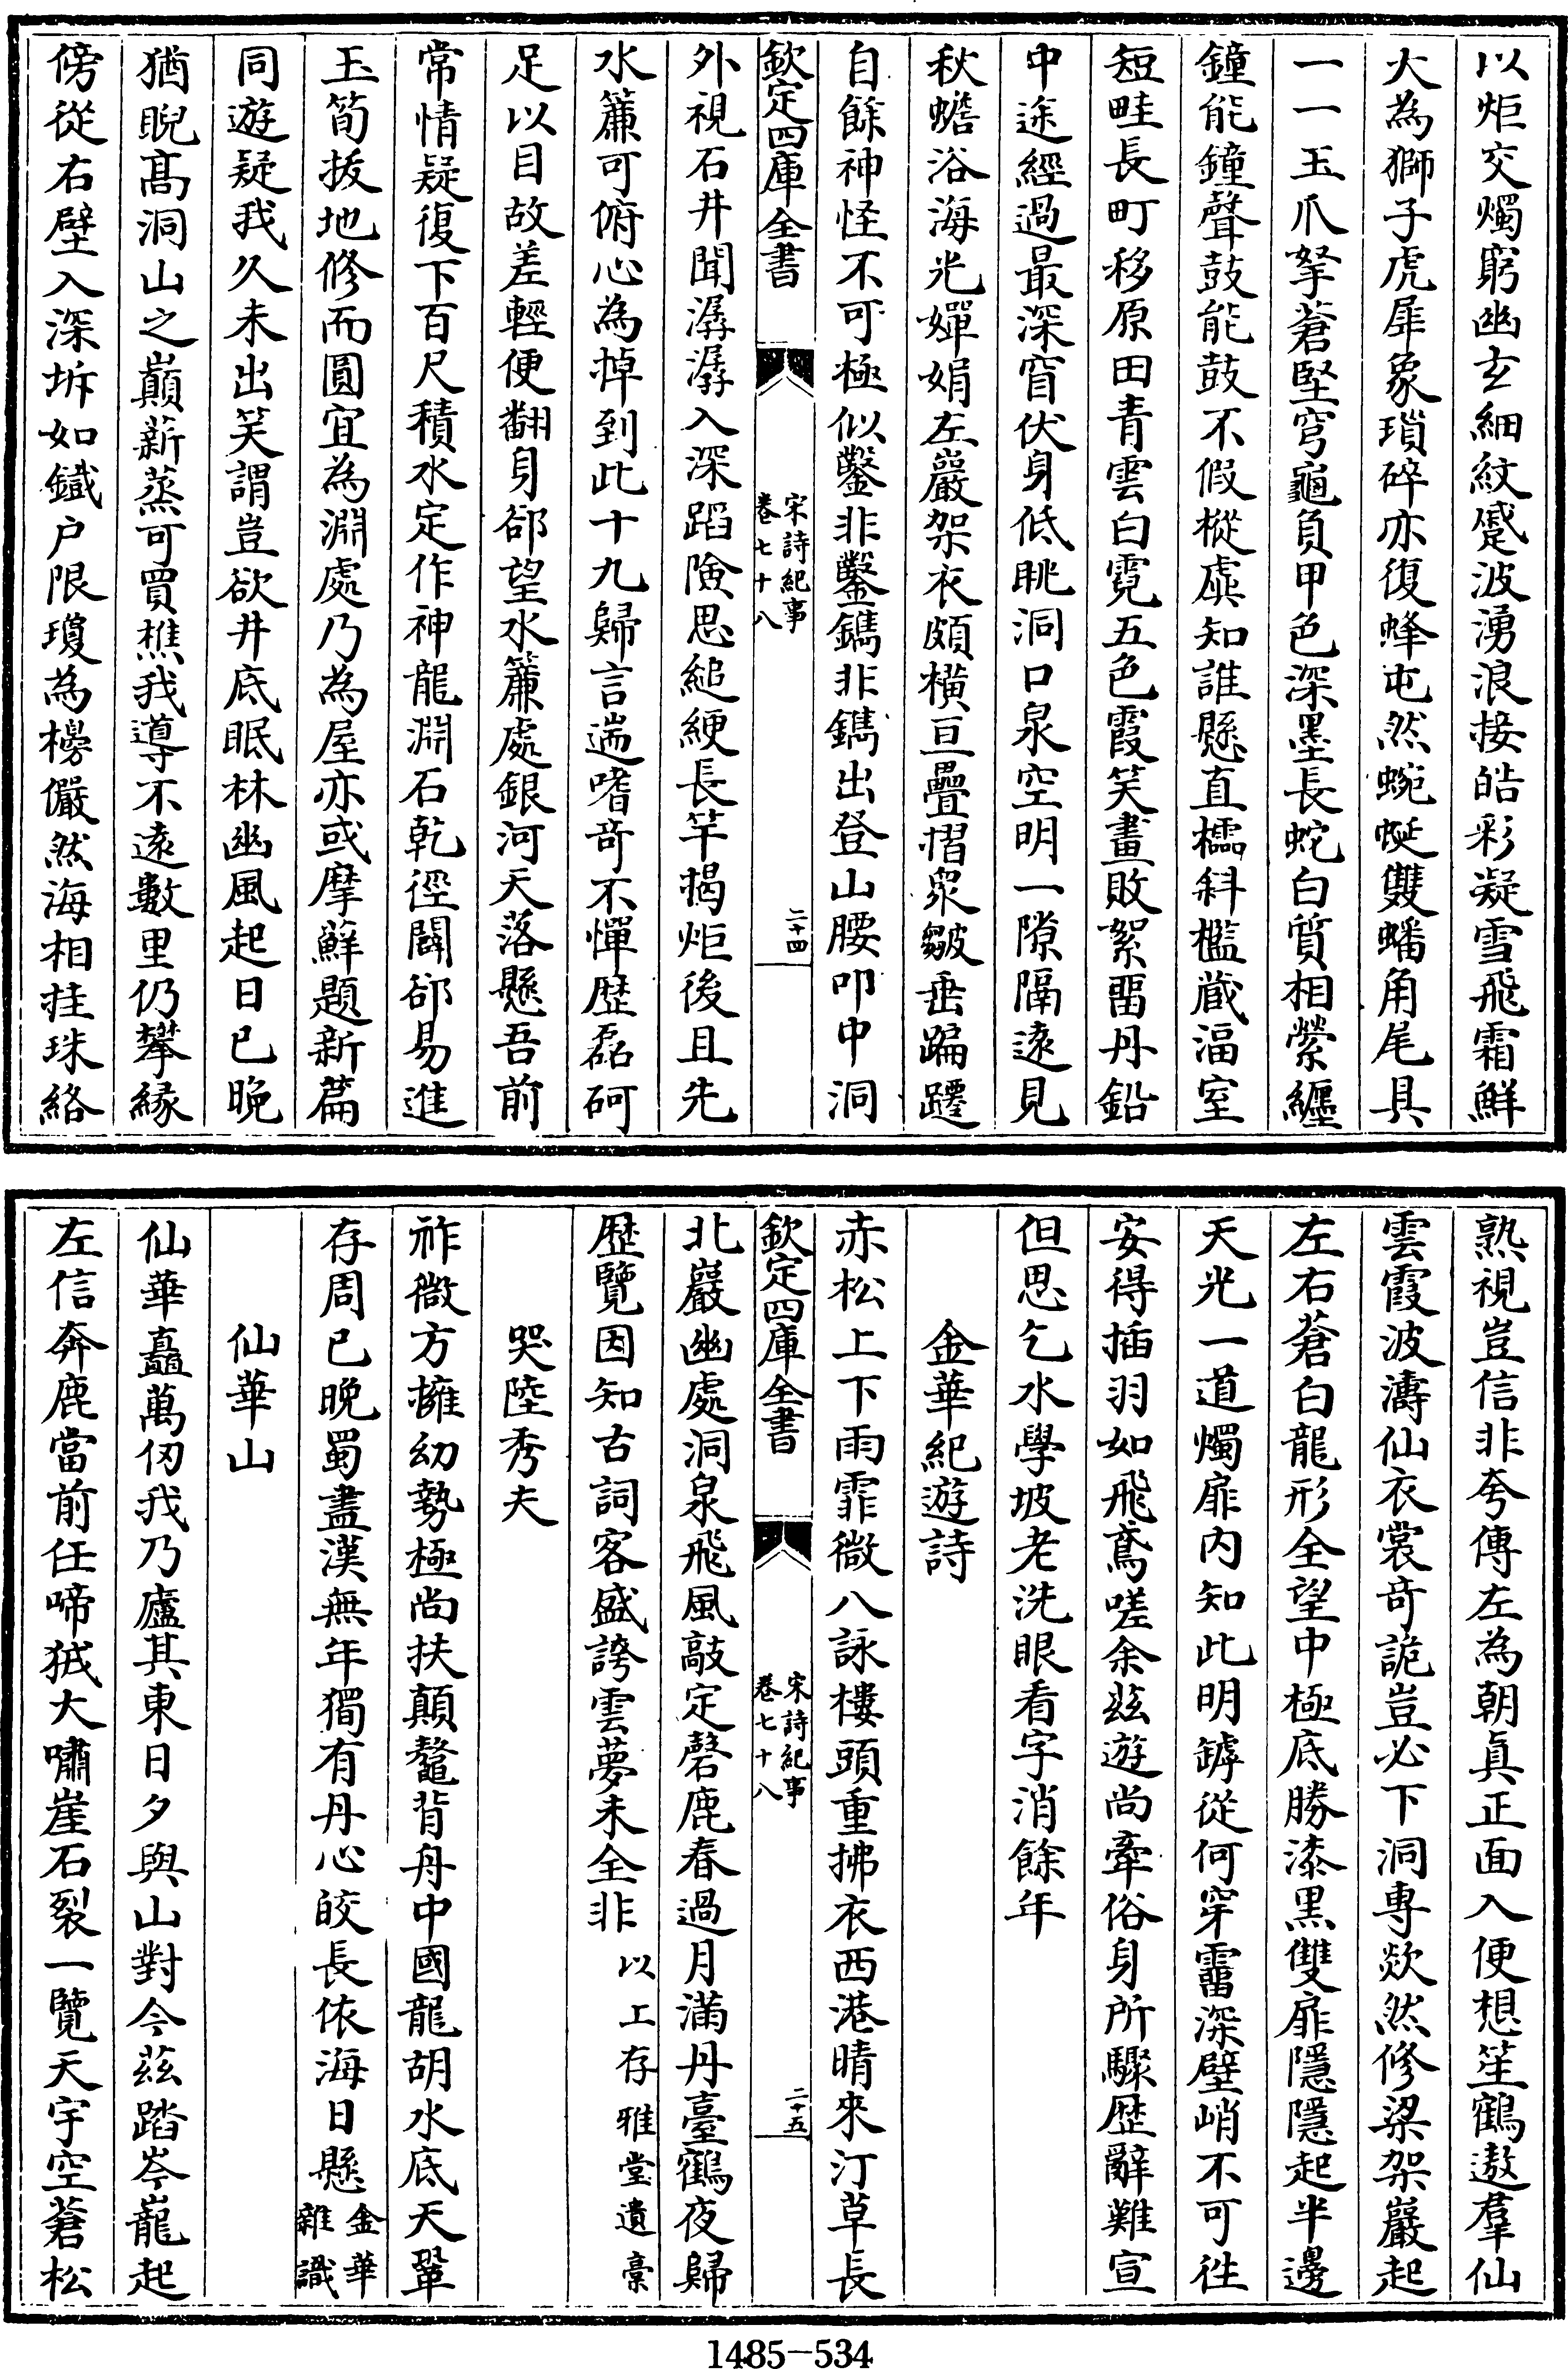 以炬交燭窮幽玄細紋蹙波湧浪接皓彩凝雪飛霜鮮
大為獅子虎犀象瑣碎亦復蜂屯然蜿蜒雙蟠角尾具
一一玉爪拏蒼堅穹龜負甲色深墨長蛇白質相縈纏
鐘能鐘聲鼓能鼓不假樅虡知誰懸直櫺斜檻蕆湢室
短畦長町移原田青雲白霓五色霞笑畫敗絮罶丹鉛
中途經過最深窅伏身低眺洞口泉空明一隙隔遠見
秋蟾浴海光嬋娟左巖架衣頗橫亘疊摺衆皺垂蹁躚
自餘神怪不可極似鑿非鑿鐫非鐫出登山腰叩中洞
欽定四庫全書
宋詩紀事
卷七十八
二十四
外視石井聞潺潺入深蹈險思縋綆長竿揭炬後且先
水簾可俯心為掉到此十九歸言遄嗜奇不憚歴磊砢
足以目故差輕便翻身郤望水簾處銀河天落懸吾前
常情疑復下百尺積水定作神龍淵石乾徑闢郤易進
玉筍拔地修而圓宜為淵處乃為屋亦或摩蘚題新篇
同遊疑我久未出笑謂豈欲井底眠林幽風起日已晚
猶睨髙洞山之巔薪蒸可買樵我導不遠數里仍攀縁
傍從右壁入深坼如鐵户限瓊為榜儼然海相拄珠絡
熟視豈信非夸傳左為朝真正面入便想笙鶴遨羣仙
雲霞波濤仙衣裳奇詭豈必下洞專欻然修梁架巖起
左右蒼白龍形全望中極底勝漆黒雙扉隱隱起半邊
天光一道燭扉内知此明罅從何穿霤深壁峭不可往
安得插羽如飛鳶嗟余兹遊尚牽俗身所驟歴辭難宣
但思乞水學坡老洗眼看字消餘年
金華紀遊詩
赤松上下雨霏微八詠樓頭重拂衣西港晴來汀草長
欽定四庫全書
宋詩紀事
卷七十八
二十五
北巖幽處洞泉飛風敲定磬鹿春過月滿丹臺鶴夜歸
歴覽因知古詞客盛誇雲夢未全非以上存雅堂遺槀
哭陸秀夫
祚微方擁幼勢極尚扶顛鼇背舟中國龍胡水底天鞏
存周已晚蜀盡漢無年獨有丹心皎長依海日懸金華雜識
仙華山
仙華矗萬仞我乃廬其東日夕與山對今兹踏岑巃起
左信奔鹿當前任啼狨大嘯崖石裂一覽天宇空蒼松
1485-534